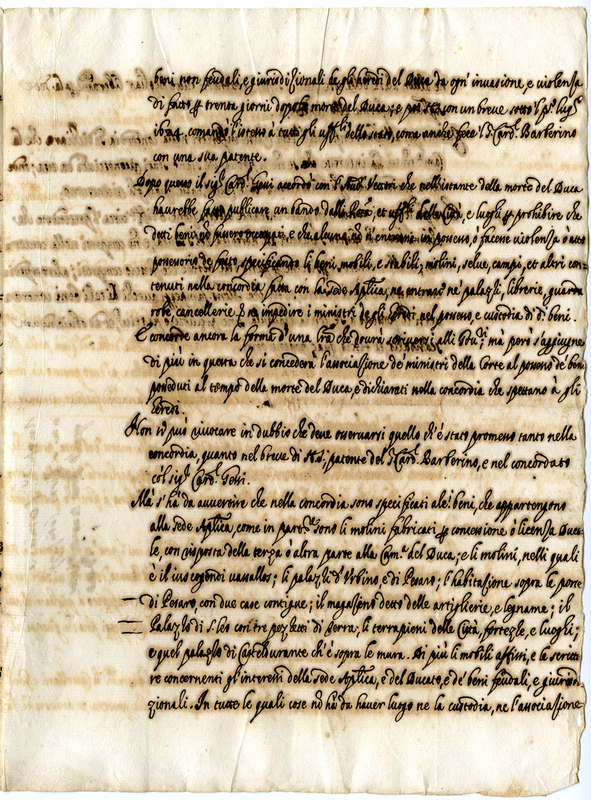 beni non feudali, e giurisdizionali da gli heredi del Duca da ogni invasione, e violenza
di fatto trenta giorni dopo la morte del Duca; e poi con un breve sotto
1624. comandò l'istesso à tutti gli dello stato, come anche fece il S. Card. Barberino
con una sua patente.
Dopo questo il sig. Card. accordò con che nell'istante della morte del Duca
havrebbe fatto publicare un bando et e luoghi prohibire che
detti beni e che alcuno entrasse in possesso, o facesse violenza ò atto
possessorio de fatto, specificando li beni, mobili, e stabili, molini, selve, campi, et altri con-
tenuti nella concordia fatta con la Sede Aplica; ne entrasse ne' palazzi, librerie, guarda
robe, cancellerie impedire i ministri de gli heredi nel possesso, e custodia di d. beni.
E concorde ancora la forma d'una che dovrà scriversi alli mà però s'aggiunge
di più in questa che si concederà l'associazione de' ministri della Corte al possesso de' beni
posseduti al tempo della morte del Duca, e dichiarati nella concordia che spettano à gli
heredi.
Non si può rivocare in dubbio che deve osservarsi quello ch'è stato promesso tanto nella
concordia, quanto nel breve di patente del S. Card. Barberino, e nel concordato
col sig. Card.
Mà s'hà da avvertire che nella concordia sono specificati de' beni, che appartengono
alla Sede Aplica, come in sono li molini fabricati concessione ò licenza Duca-
le, con risposta della terza ò altra parte alla del Duca; e li molini, nelli quali
è il ius cogendi vassallos; li palazzi d'Urbino, e di Pesaro; l'habitazione sopra le porte
di Pesaro, con due case contigue; il magazzeno detto delle artiglierie, e legname; il
Palazzo di S. Leo con tre pezzetti di terra, li terrapieni delle Città, fortezze, e luoghi;
e quel palazzo di Casteldurante ch'è sopra le mura. Di più li mobili affissi, e le scrittu-
re concernenti gl'interessi della Sede Aplica, e del Ducato, e de' beni feudali, e giurisdi-
zionali. In tutte le quali cose nõ hà da haver luogo ne la custodia, ne l'associazione